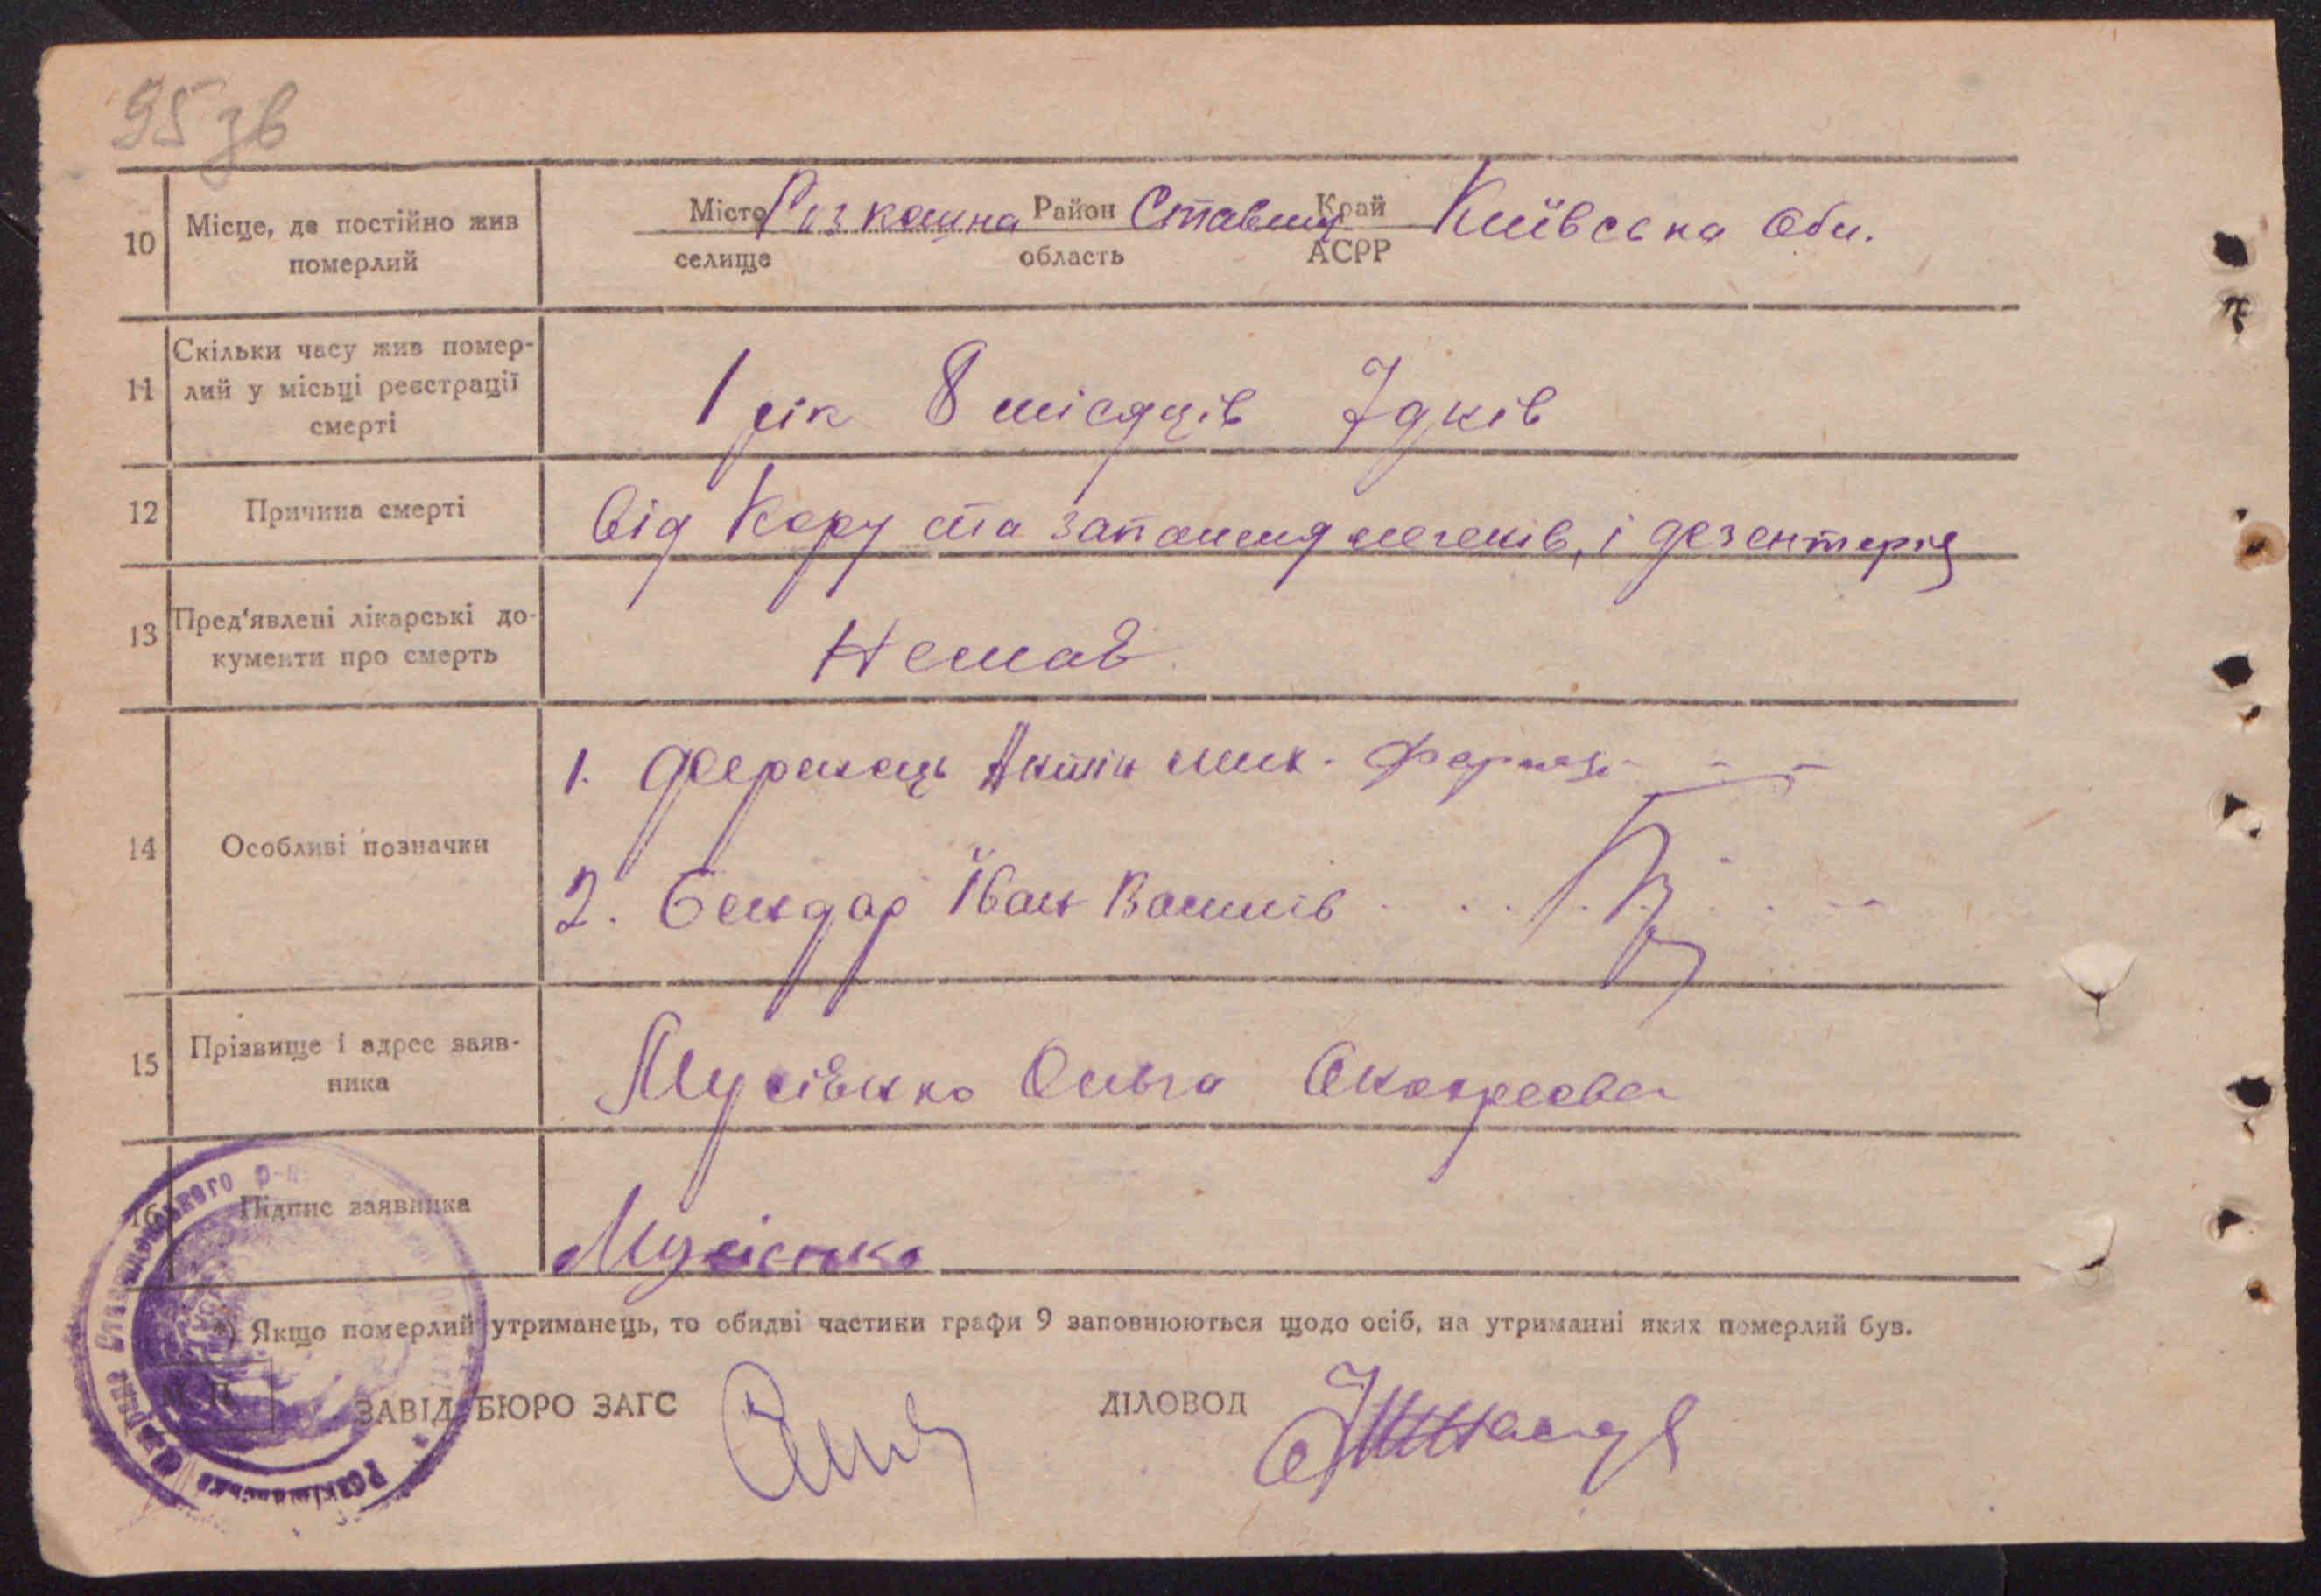 95 зв
10 Місце, де постійно жив померлий
Місто Розкошна Район Ставищ Край Київська Обл.
селище область АСРР
11 Скільки часу жив помер-
лий у місьці реєстрації
смерті
1 рік 8 місяців 7 днів
12 Причина смерті
Від Кору та запалення легенів, і дезентерія
13 Пред'явлені лікарські до-
кументи про смерть
Немає
14 Особливі позначки
1.
2. Бендар Іван Васил
15 Прізвище і адрес заяв-
ника
Мусієнко Ольга
16 Підпис заявника
Мусієнко
*) Якщо померлий утриманець, то обидві частини графи 9 заповнюються щодо осіб, на утриманні яких померлий був.
М. П.
ЗАВІД. БЮРО ЗАГС
ДІЛОВОД